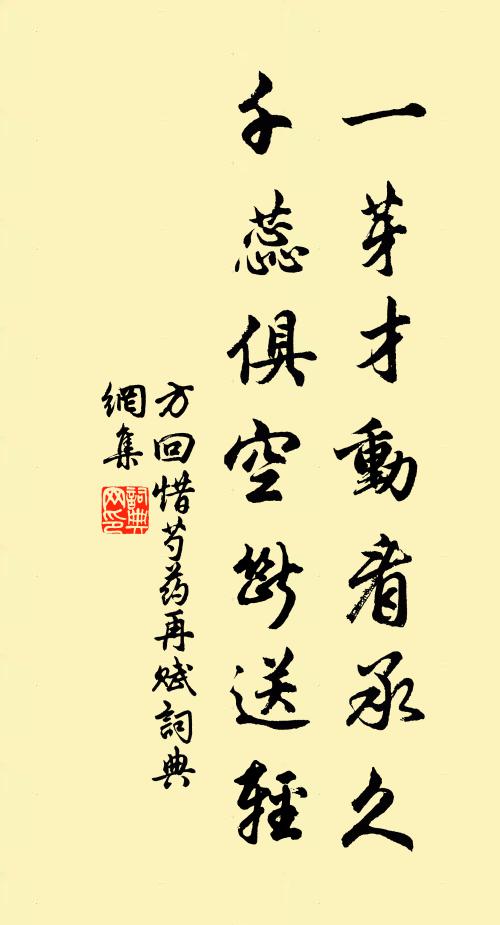 一芽才動看承久
千蕊俱空斷送輕
方回惜芍药再赋詞典
網集
詞典网印